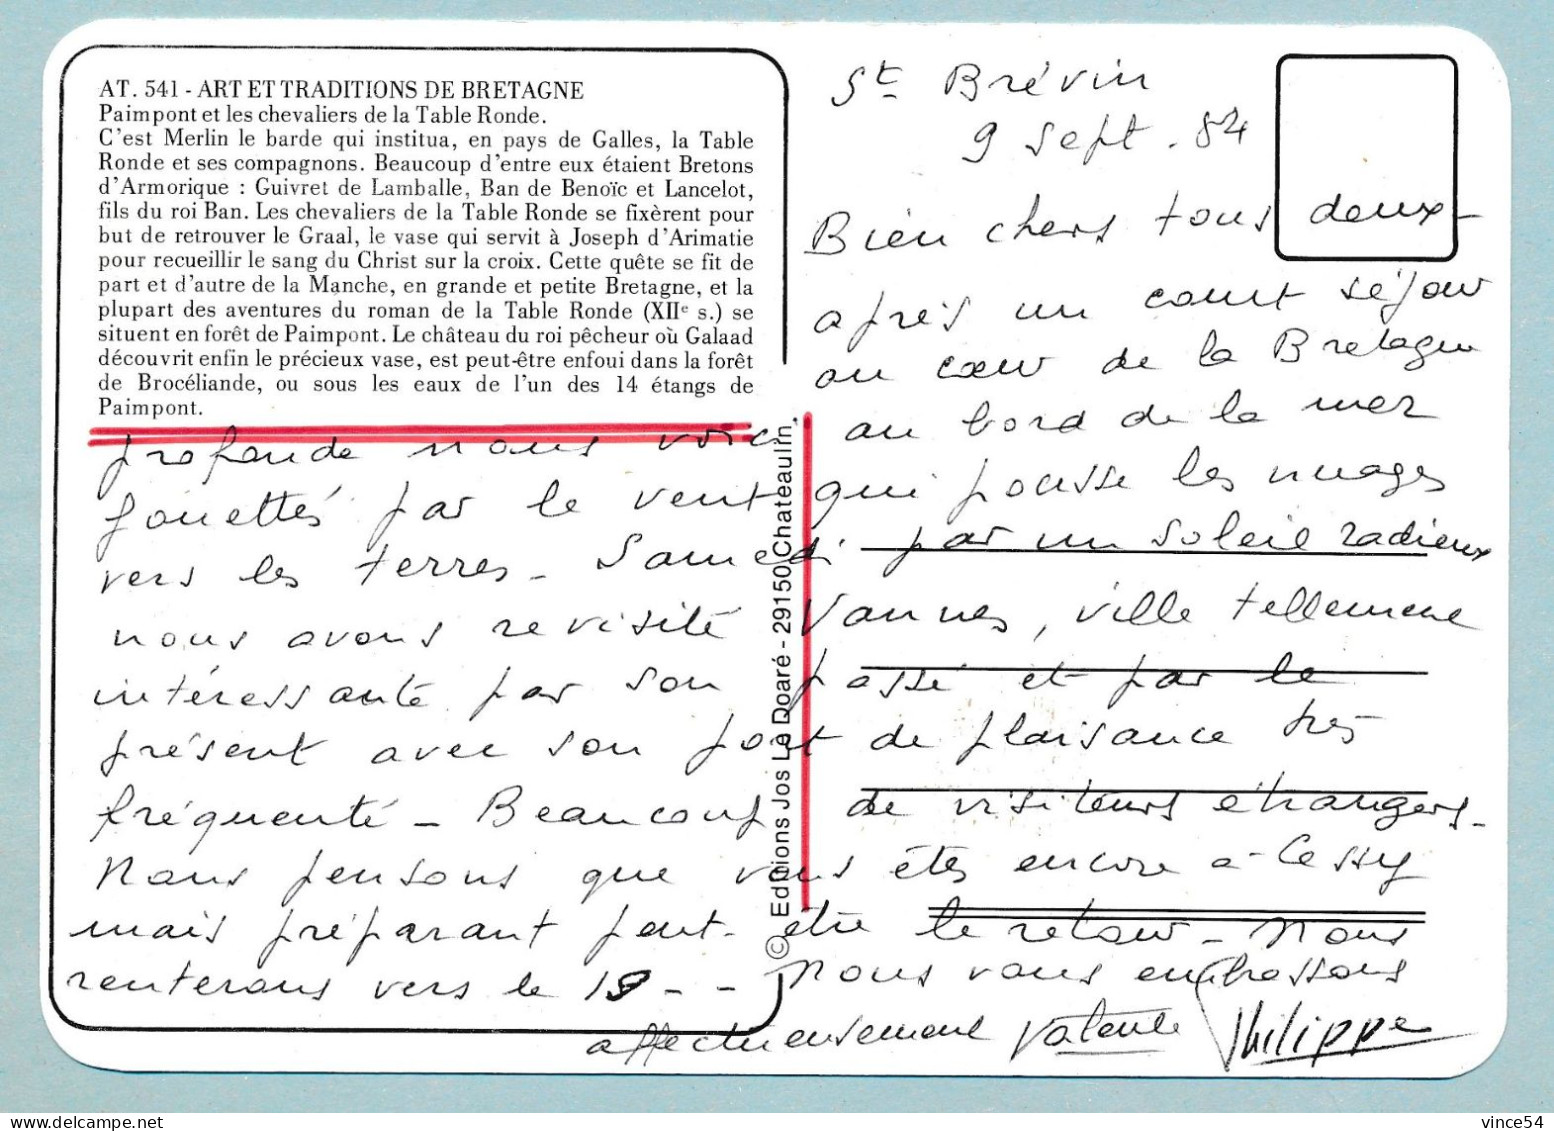 AT. 541 - ART ET TRADITIONS DE BRETAGNE
Paimpont et les chevaliers de la Table Ronde.
C'est Merlin le barde qui institua, en pays de Galles, la Table
Ronde et ses compagnons. Beaucoup d'entre eux étaient Bretons
d'Armorique : Guivret de Lamballe, Ban de Benoïc et Lancelot,
fils du roi Ban. Les chevaliers de la Table Ronde se fixèrent pour
but de retrouver le Graal, le vase qui servit à Joseph d'Arimatie
pour recueillir le sang du Christ sur la croix. Cette quête se fit de
part et d'autre de la Manche, en grande et petite Bretagne, et la
plupart des aventures du roman de la Table Ronde (XIIe s.) se
situent en forêt de Paimpont. Le château du roi pêcheur où Galaad
découvrit enfin le précieux vase, est peut-être enfoui dans la forêt
de Brocéliande, ou sous les eaux de l'un des 14 étangs de
Paimpont.
© Editions Jos Le Doaré - 29150 Chateaulin.
St Brévin
9 Sept. 84
Bien chers tous deux -
après un court séjour
au cœur de la Bretagne
profonde nous voici au bord de la mer
fouettés par le vent qui pousse les nuages
vers les terres - Samedi par un soleil radieux
nous avons revisité Vannes, ville tellement
intéressante par son passé et par le
présent avec son port de plaisance très
fréquenté - Beaucoup de visiteurs étrangers -
Nous pensons que vous êtes encore à Cessy
mais préparant peut-être le retour - Nous
rentrerons vers le 18 - - Nous vous embrassons
affectueusement Philippe
vince54